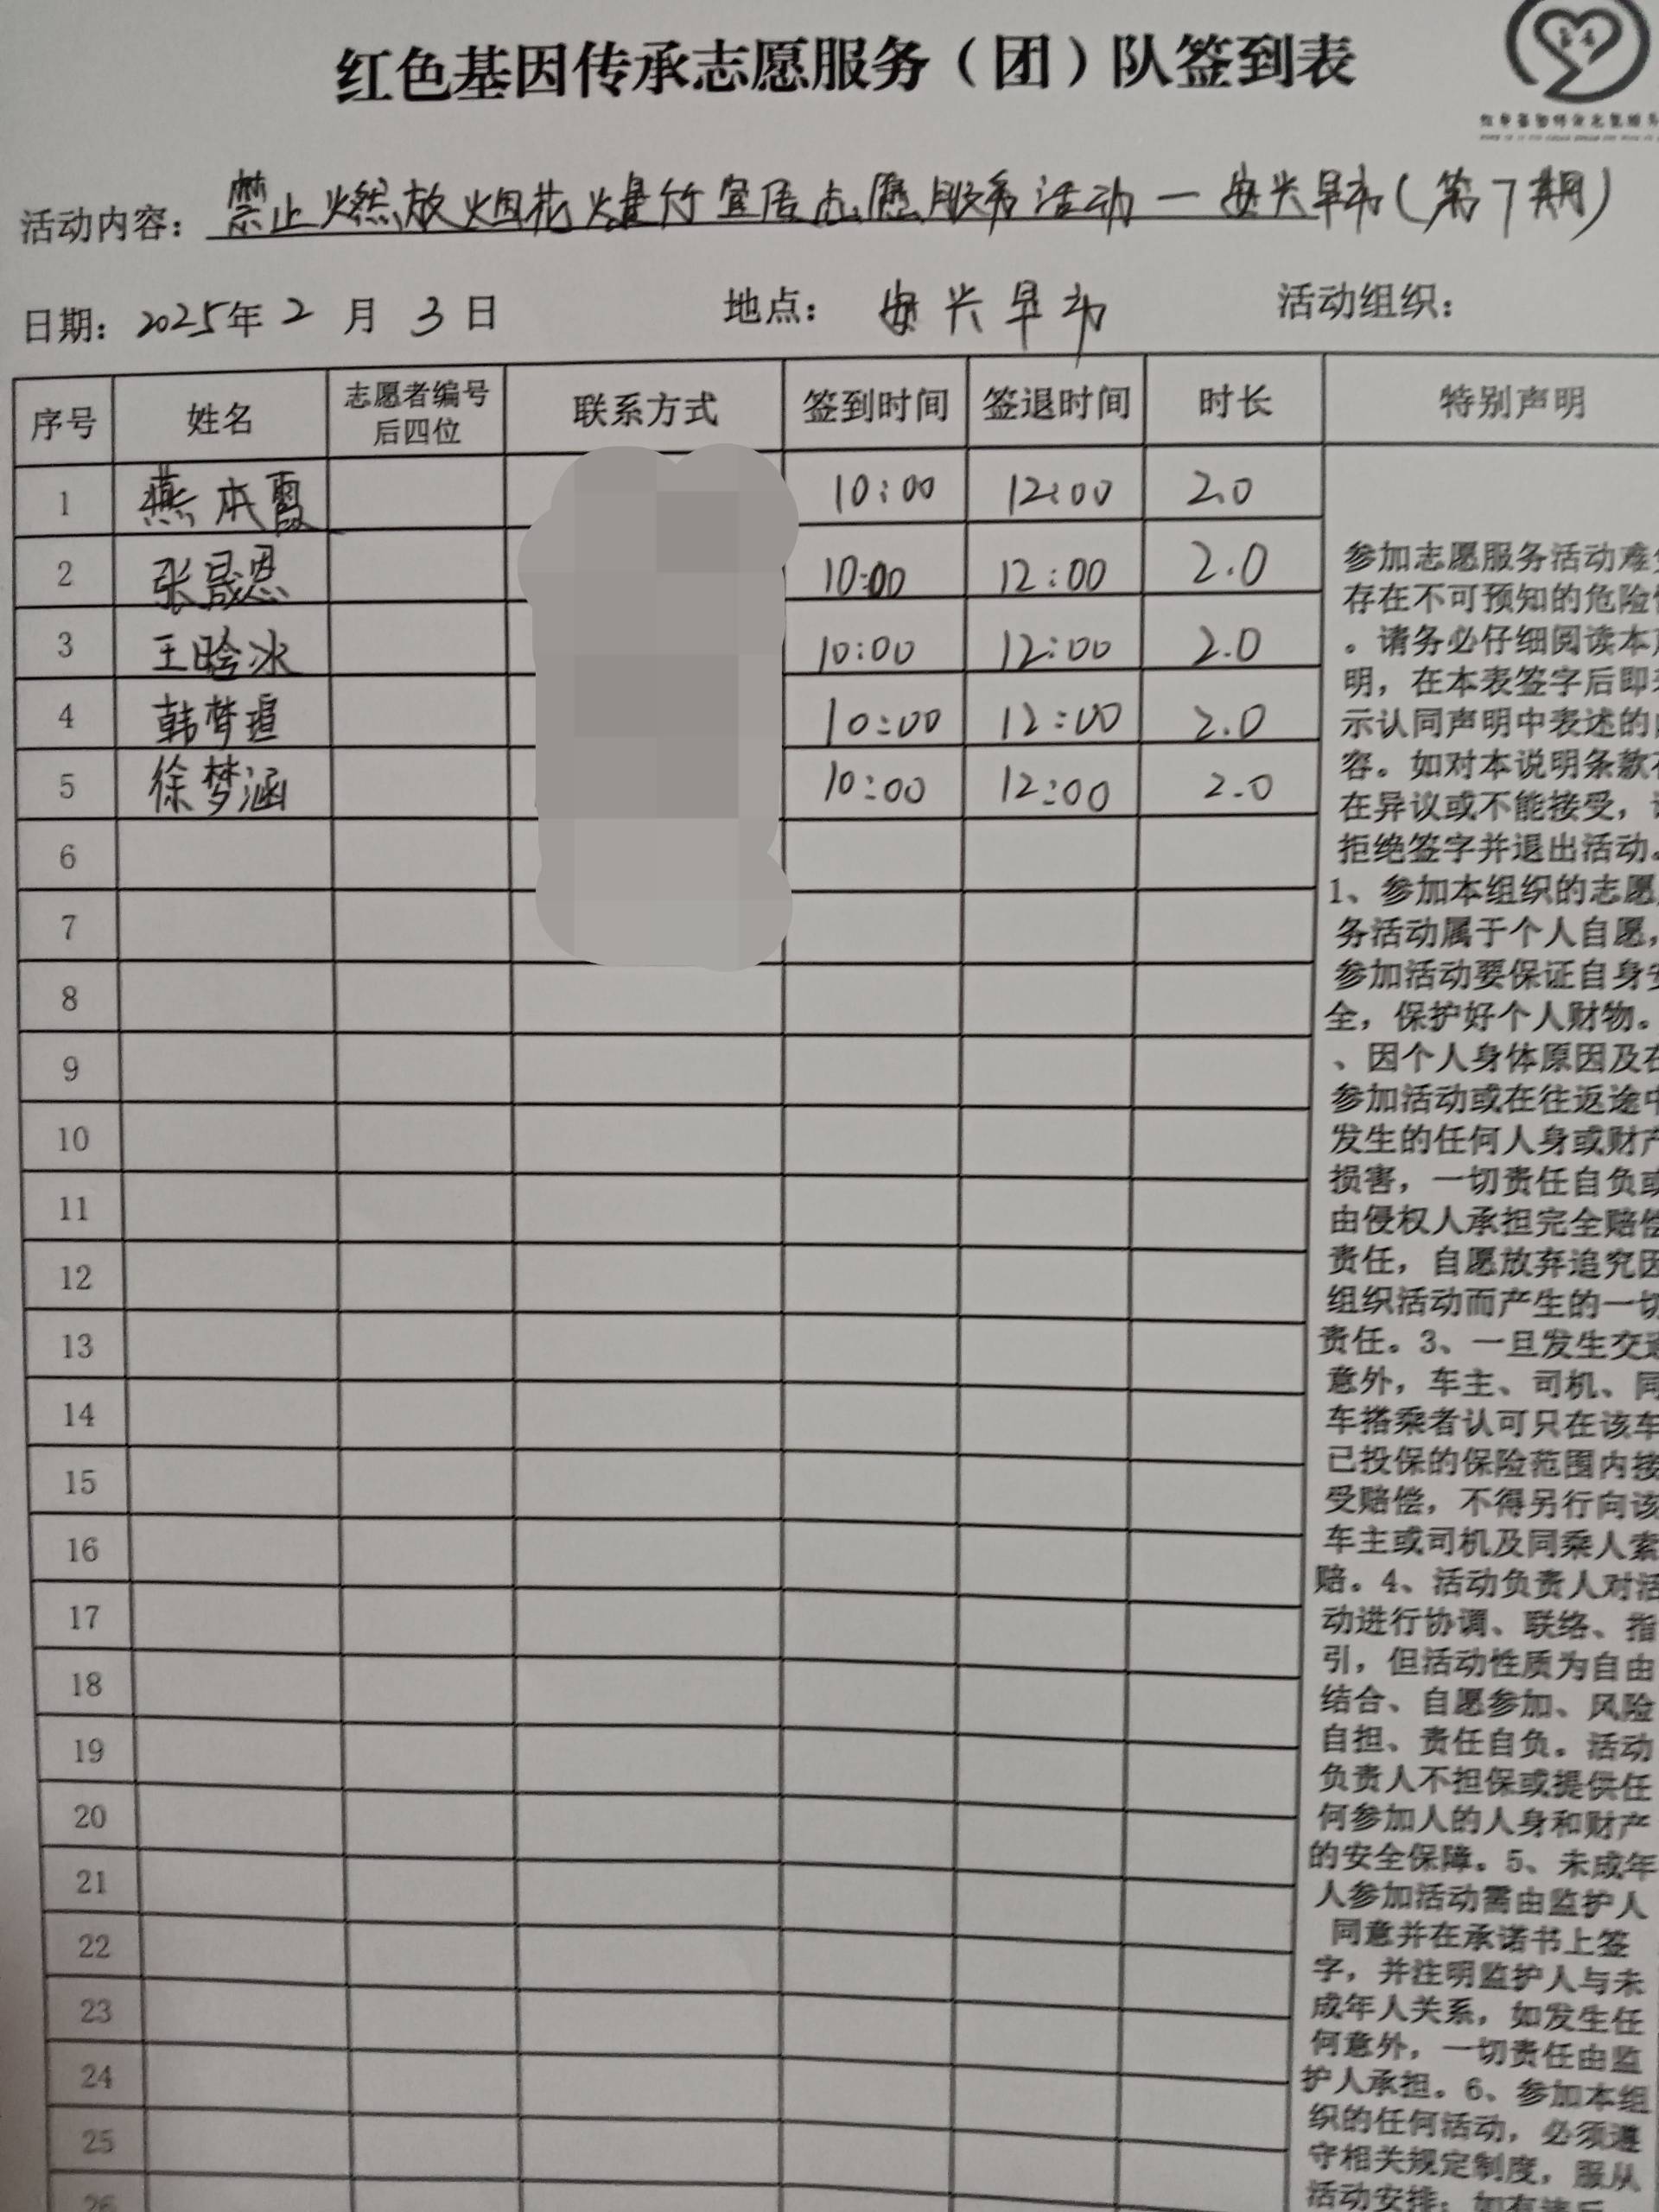 红色基因传承志愿服务（团）队签到表
活动内容：禁止燃放烟花爆竹宣传志愿服务活动—安兴早市（第7期）
日期：2025年2月3日 地点：安兴早市 活动组织：
序号 姓名 志愿者编号后四位 联系方式 签到时间 签退时间 时长 特别声明
1 燕本霞 10:00 12:00 2.0
2 张晟恩 10:00 12:00 2.0
3 王晗冰 10:00 12:00 2.0
4 韩梦瑄 10:00 12:00 2.0
5 徐梦涵 10:00 12:00 2.0
6
7
8
9
10
11
12
13
14
15
16
17
18
19
20
21
22
23
24
25
26
参加志愿服务活动难
存在不可预知的危险
。请务必仔细阅读本
明，在本表签字后即
示认同声明中表述的
容。如对本说明条款
在异议或不能接受，
拒绝签字并退出活动。
1、参加本组织的志愿
务活动属于个人自愿，
参加活动要保证自身安
全，保护好个人财物。
、因个人身体原因及在
参加活动或在往返途中
发生的任何人身或财产
损害，一切责任自负或
由侵权人承担完全赔偿
责任，自愿放弃追究因
组织活动而产生的一切
责任。3、一旦发生交通
意外，车主、司机、同
车搭乘者认可只在该车
已投保的保险范围内接
受赔偿，不得另行向该
车主或司机及同乘人索
赔。4、活动负责人对活
动进行协调、联络、指
引，但活动性质为自由
结合、自愿参加、风险
自担、责任自负。活动
负责人不担保或提供任
何参加人的人身和财产
的安全保障。5、未成年
人参加活动需由监护人
同意并在承诺书上签
字，并注明监护人与未
成年人关系，如发生任
何意外，一切责任由监
护人承担。6、参加本组
织的任何活动，必须遵
守相关规定制度，服从
活动安排；如有违反